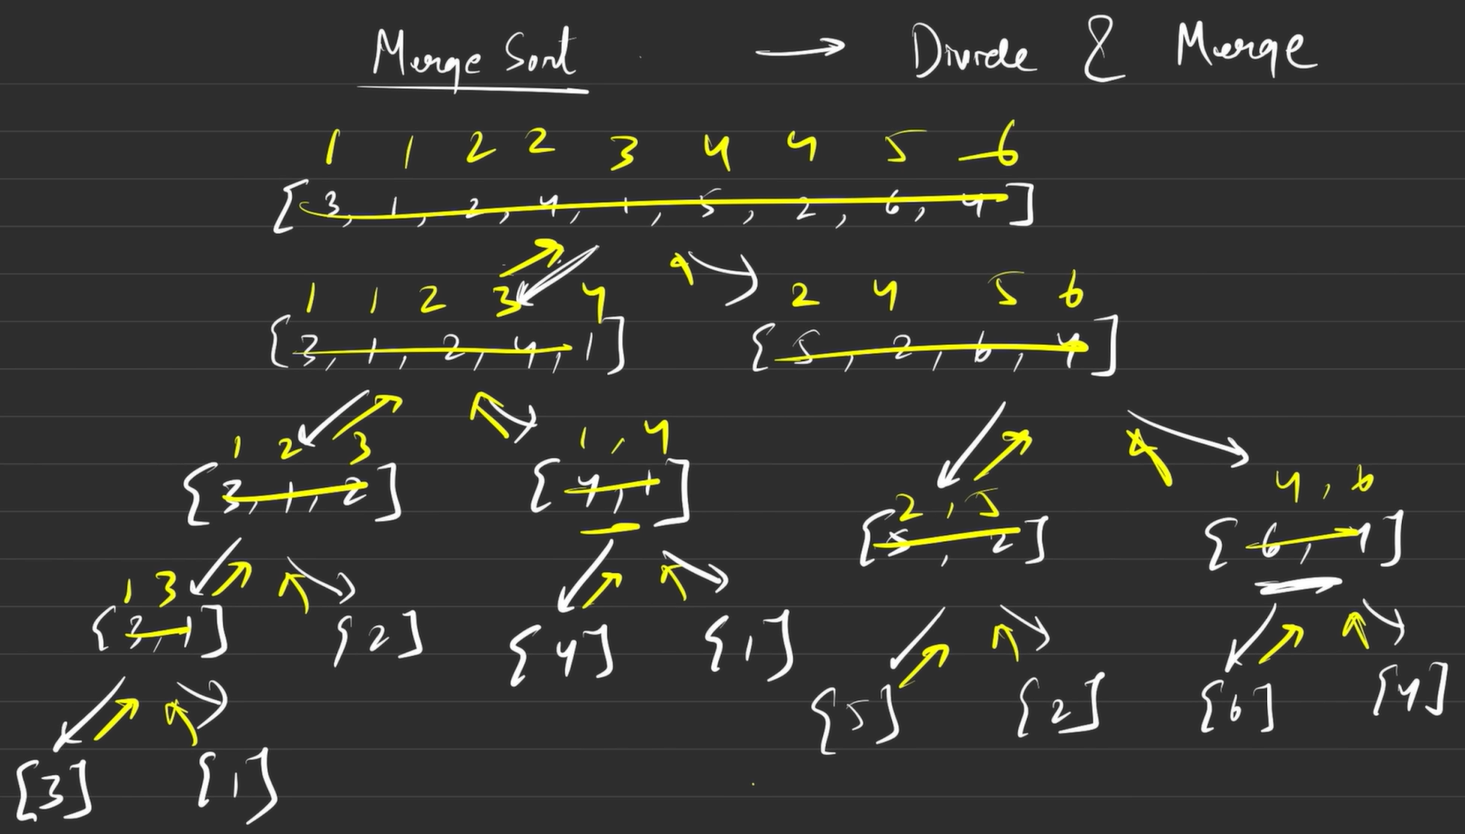 Merge Sort → Divide & Merge
1 1 2 2 3 4 4 5 6
[3, 1, 2, 4, 1, 5, 2, 6, 4]
1 1 2 3 4 2 4 5 6
[3, 1, 2, 4, 1] [5, 2, 6, 4]
1 2 3 1, 4
[3, 1, 2] [4, 1]
2, 5 4, 6
[5, 2] [6, 4]
1 3
[3, 1] [2] [4] [1]
[5] [2] [6] [4]
[3] [1]